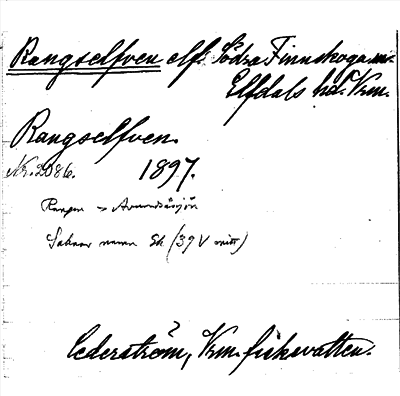 Rangselfven elf i Södra Finnskoga sn.
Elfdals hd. Vrm.
Rangselfven.
Nr. 2086. 1897.
Rangen → Avundsåsjön
Saknar namn Ek (39 V mitt)
Cederström, Vrm. fiskevatten.